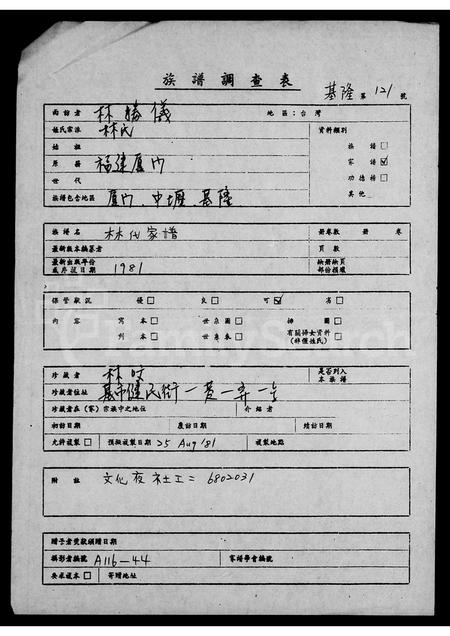 族譜調查表
基隆 第 121 號
面訪者 林勝儀 地區：台灣
姓氏宗派 林氏 資料類別
始祖 族譜□
原籍 福建廈门 家譜☑
世代 功德榜□
族譜包含地區 廈门、中壢 基隆 其他
族譜名 林氏家譜 冊卷數 冊 卷
最新版本編纂者 頁數
最新出版年份或序說日期 1981 缺冊缺頁部份損壞
保管狀況 優□ 良□ 可☑ 劣□
內容 寫本□ 世系圖□ 排圖□
刊本□ 世系表□ 有關婦女資料(非僅姓氏)□
珍藏者 林 是否列入本族譜
珍藏者住址 基市健民街一巷一弄一号
珍藏者在(家)宗族中之地位 介紹者
初訪日期 度訪日期 續訪日期
允許複製□ 預擬複製日期 25 Aug '81 複製地點
附註 文化夜社工二 6802031
贈予者獎狀頒贈日期
攝影者編號 A116-44 家譜學會編號
要求複本□ 寄贈地址
FamilySearch